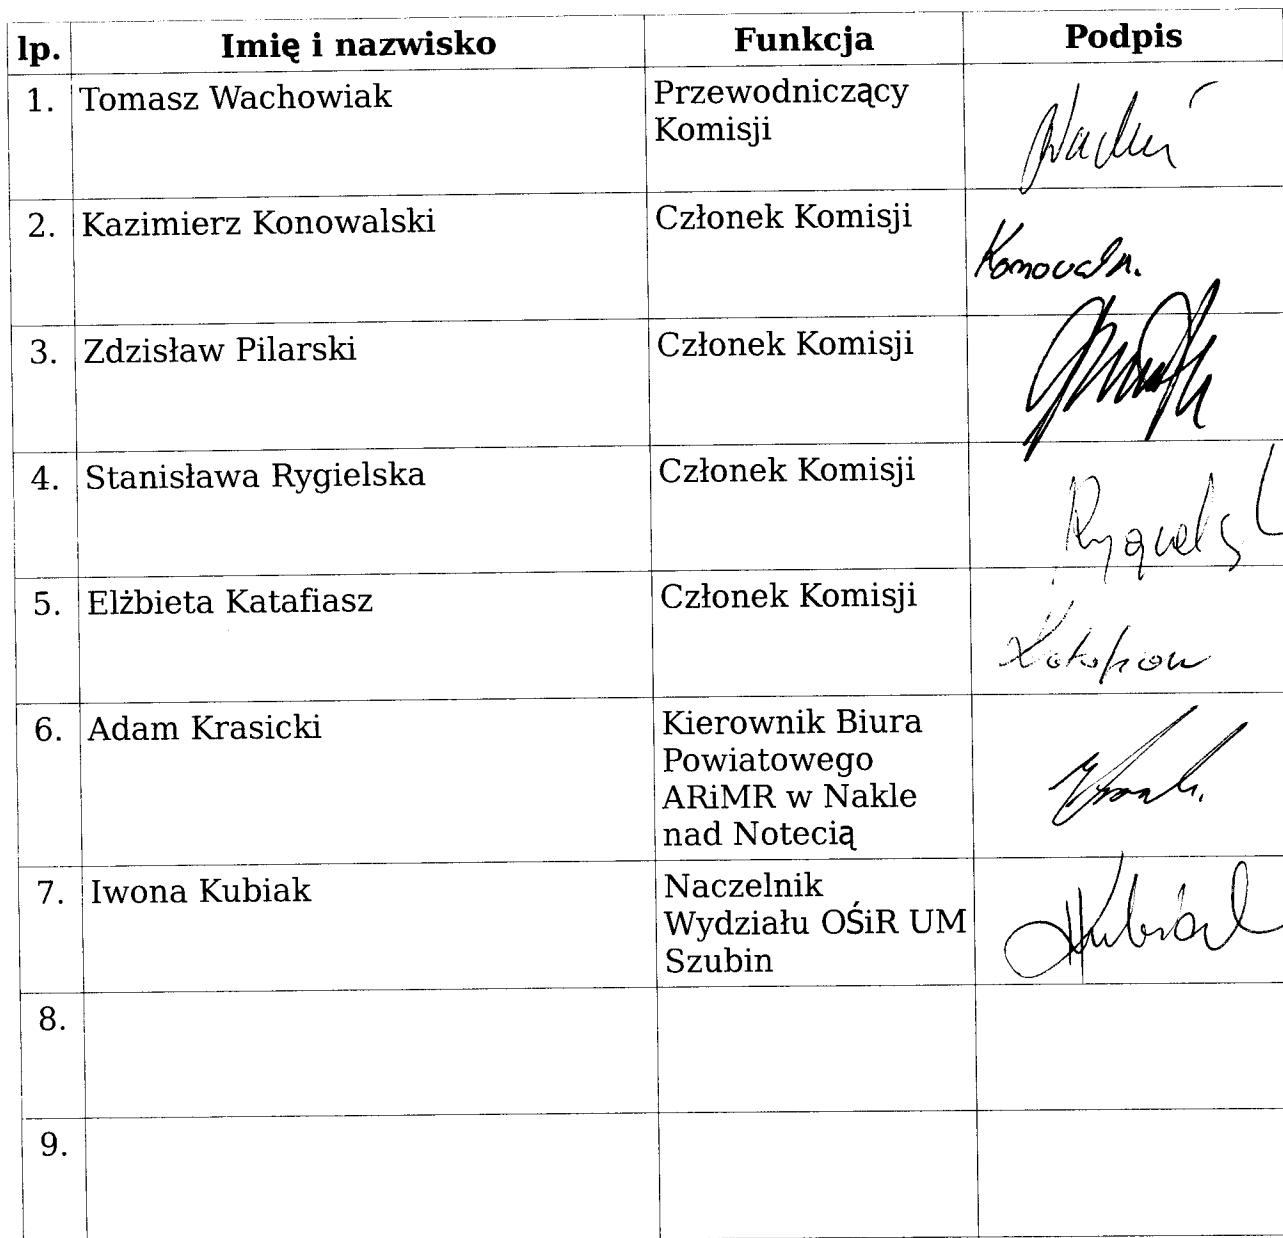 lp. Imię i nazwisko Funkcja Podpis
1. Tomasz Wachowiak Przewodniczący
Komisji
2. Kazimierz Konowalski Członek Komisji
3. Zdzisław Pilarski Członek Komisji
4. Stanisława Rygielska Członek Komisji
5. Elżbieta Katafiasz Członek Komisji
6. Adam Krasicki Kierownik Biura
Powiatowego
ARiMR w Nakle
nad Notecią
7. Iwona Kubiak Naczelnik
Wydziału OŚiR UM
Szubin
8.
9.